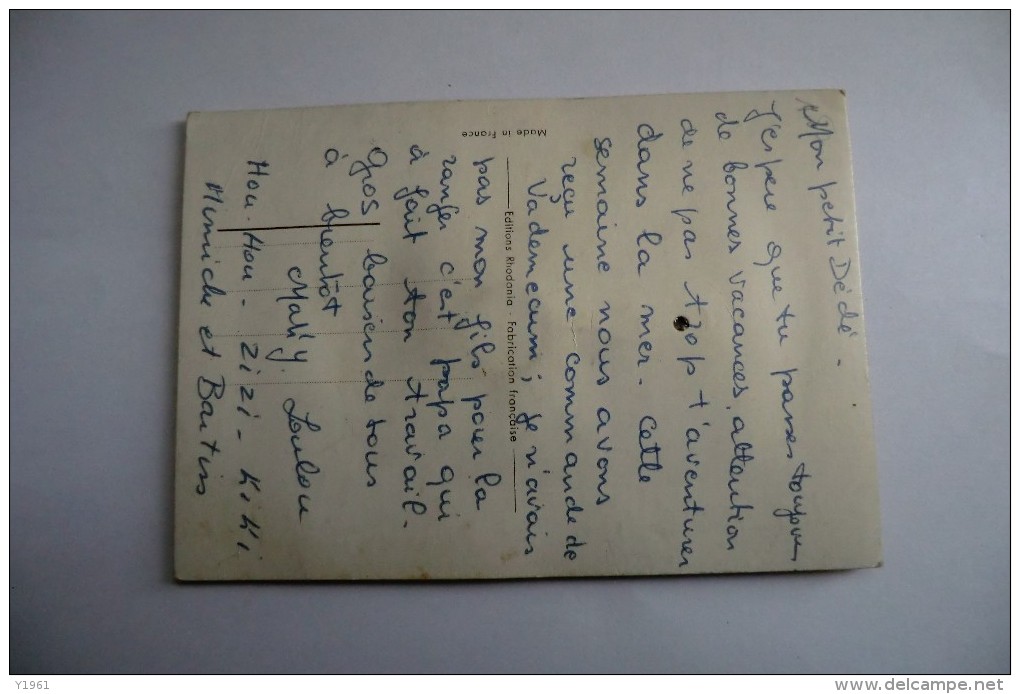 Mon petit Dédé -
J'espère que tu passes toujours
de bonnes vacances, attention
de ne pas trop t'aventurer
dans la mer. Cette
semaine nous avons
reçu une commande de
Vademecum ; je n'avais
pas mon fils pour la
ranger c'est papa qui
à fait ton travail.
Gros baiser de tous
à bientôt
Mally. Loulou
Hou-Hou - Zizi - Kiki
Mimiche et
Editions Rhodania - Fabrication française
Made in France
Y1961
www.delcampe.net